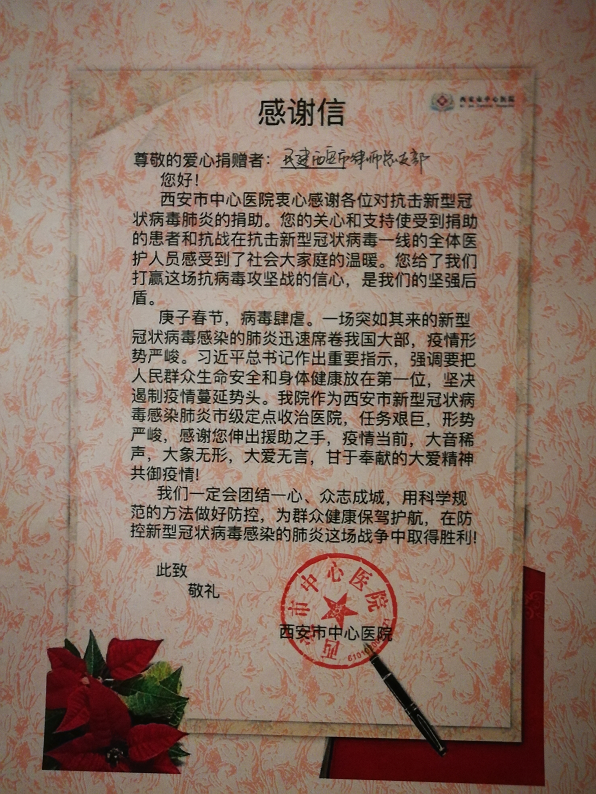 感谢信
西安市中心医院
尊敬的爱心捐赠者：民建西安市律师总支部
您好！
西安市中心医院衷心感谢各位对抗击新型冠
状病毒肺炎的捐助。您的关心和支持使受到捐助
的患者和抗战在抗击新型冠状病毒一线的全体医
护人员感受到了社会大家庭的温暖。您给了我们
打赢这场抗病毒攻坚战的信心，是我们的坚强后
盾。
庚子春节，病毒肆虐。一场突如其来的新型
冠状病毒感染的肺炎迅速席卷我国大部，疫情形
势严峻。习近平总书记作出重要指示，强调要把
人民群众生命安全和身体健康放在第一位，坚决
遏制疫情蔓延势头。我院作为西安市新型冠状病
毒感染肺炎市级定点收治医院，任务艰巨，形势
严峻，感谢您伸出援助之手，疫情当前，大音稀
声，大象无形，大爱无言，甘于奉献的大爱精神
共御疫情!
我们一定会团结一心、众志成城，用科学规
范的方法做好防控，为群众健康保驾护航，在防
控新型冠状病毒感染的肺炎这场战争中取得胜利!
此致
敬礼
西安市中心医院
西安市中心医院